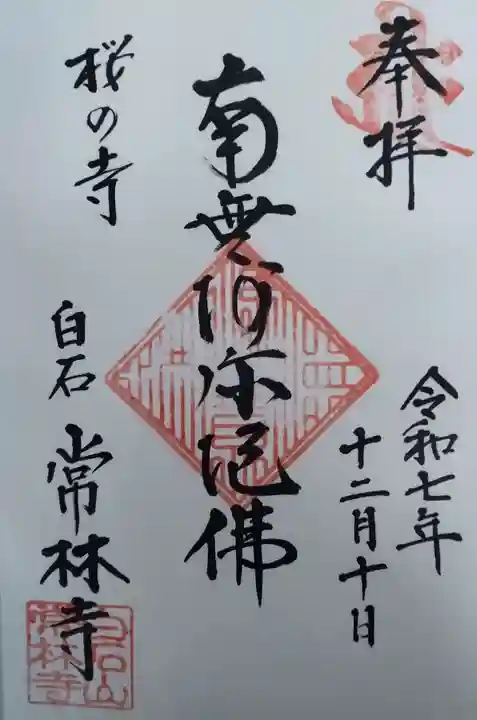 奉拝
令和七年
十二月十日
南無阿弥陀佛
桜の寺
白石
常林寺
白石山
常林寺